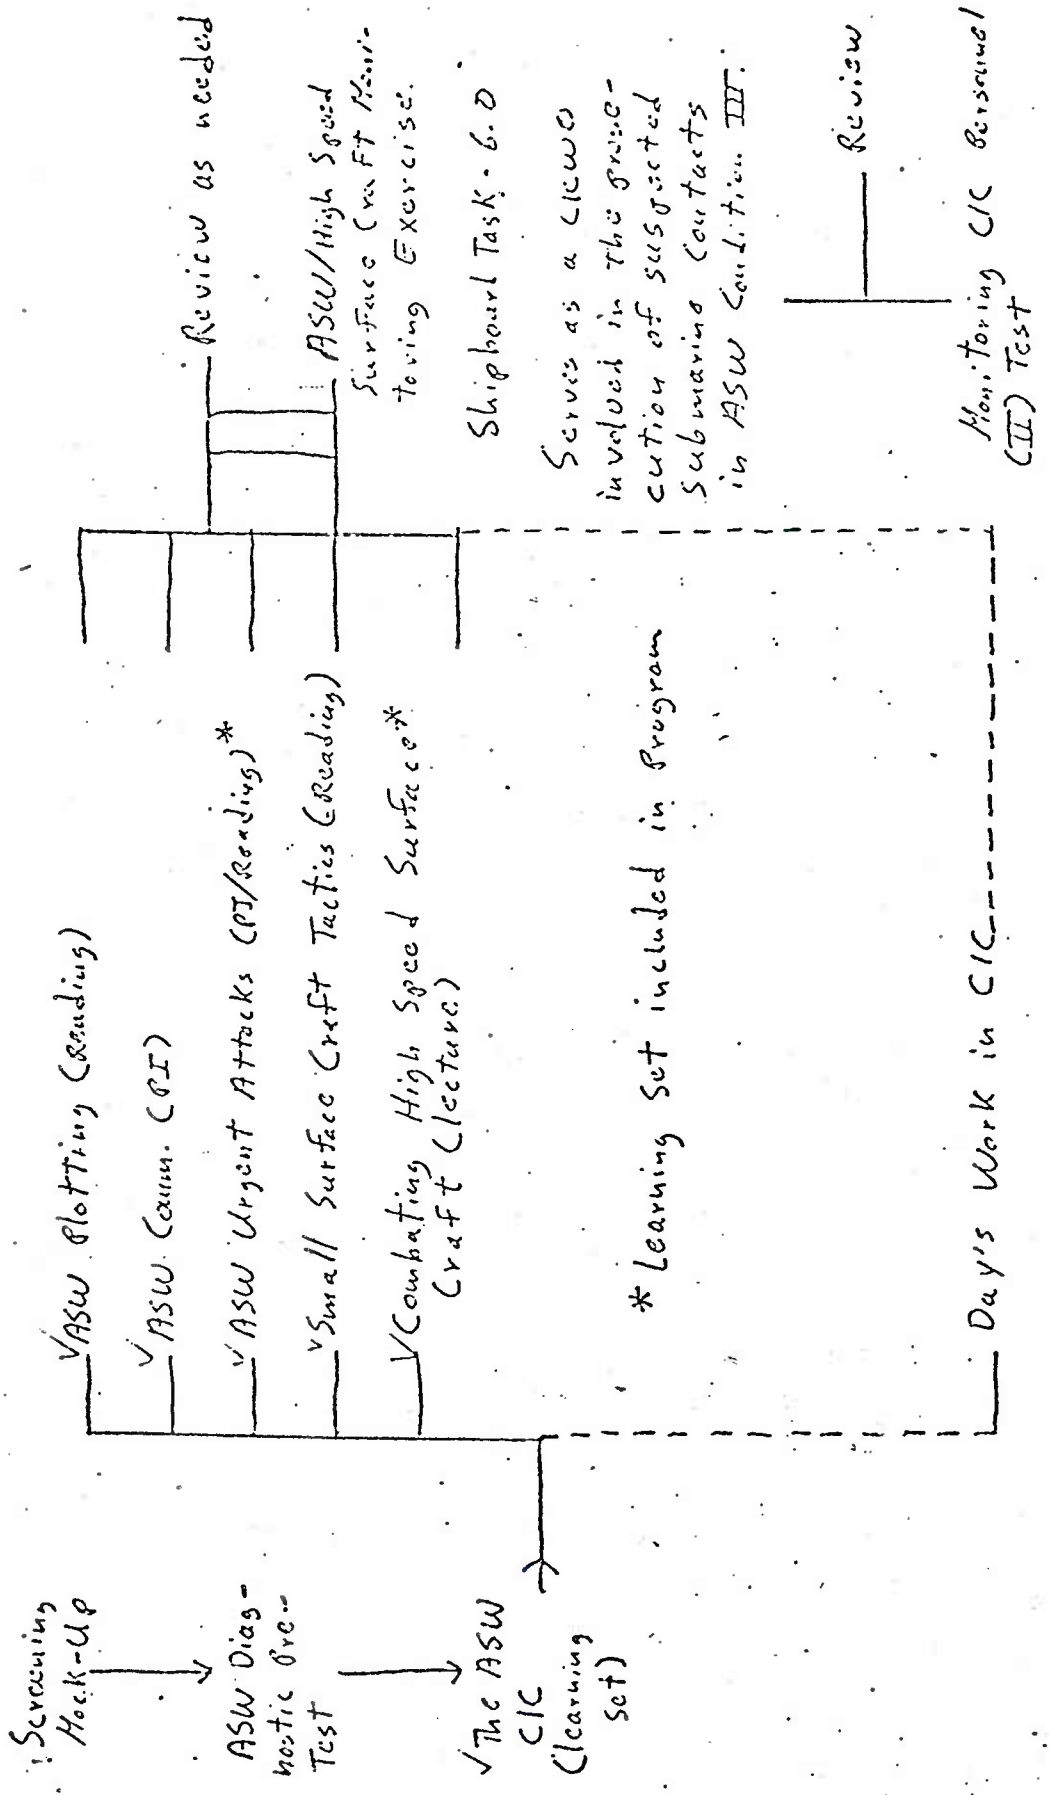 Screening
Mock-Up
ASW Diag-
nostic Pre-
Test
√The ASW
CIC
(learning
Set)
√ASW Plotting (Reading)
√ASW Comm. (PI)
√ASW Urgent Attacks (PI/Reading)*
√Small Surface Craft Tactics (Reading)
√Combating High Speed Surface*
Craft (lecture)
* Learning Set included in Program
Day's Work in CIC
Review as needed
ASW/High Speed
Surface Craft Moni-
toring Exercise.
Shipboard Task - 6.0
Serves as a CICWO
involved in the prose-
cution of suspected
Submarine Contacts
in ASW Condition III.
Review
Monitoring CIC Personnel
(II) Test